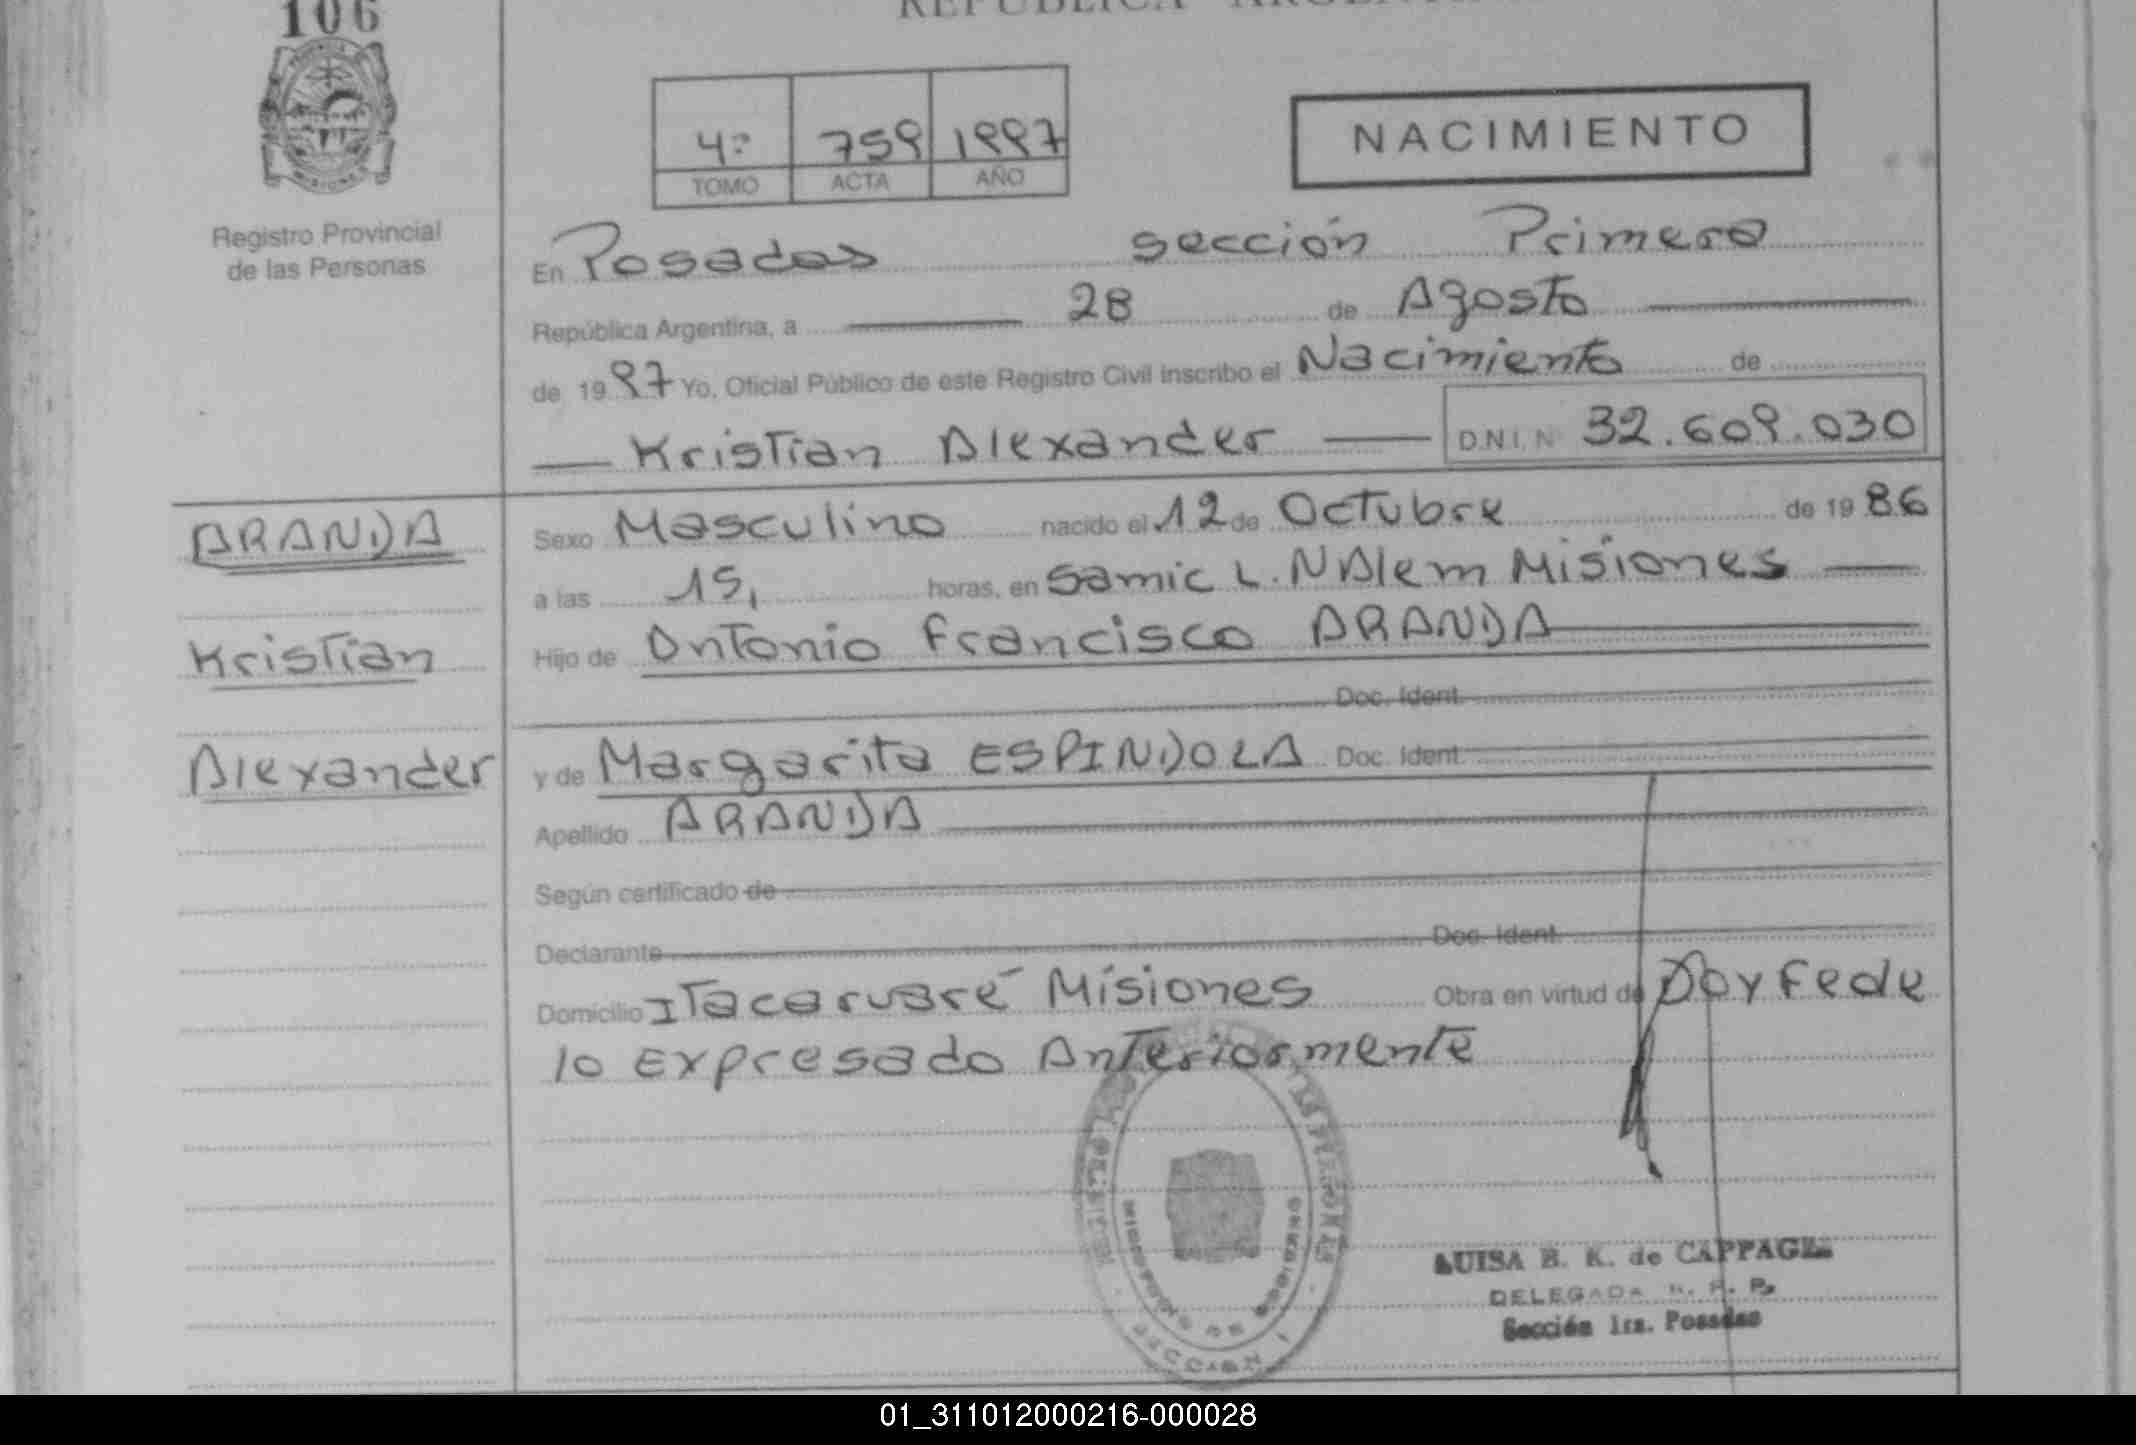 106
REPUBLICA ARGENTINA
PROVINCIA
MISIONES
Registro Provincial
de las Personas
4º 759 1997
TOMO ACTA AÑO
NACIMIENTO
En Posadas sección Primera
República Argentina, a 28 de Agosto
de 1997 Yo, Oficial Público de este Registro Civil inscribo el Nacimiento de
Kristian Alexander D.N.I. N 32.609.030
ARANDA
Kristian
Alexander
Sexo Masculino nacido el 12 de Octubre de 1986
a las 15, horas, en Samic L. N Alem Misiones
Hijo de Antonio Francisco ARANDA
Doc. Ident.
y de Margarita ESPINDOLA Doc. Ident.
Apellido ARANDA
Según certificado de
Declarante Doc. Ident.
Domicilio Itacaruaré Misiones Obra en virtud de Doy Fe de
lo Expresado Anteriormente
MINISTERIO DE GOBIERNO
SECCION 1
LUISA B. K. de CAPPAGLI
DELEGADA R. P. P.
Sección 1ra. Posadas
01_311012000216-000028